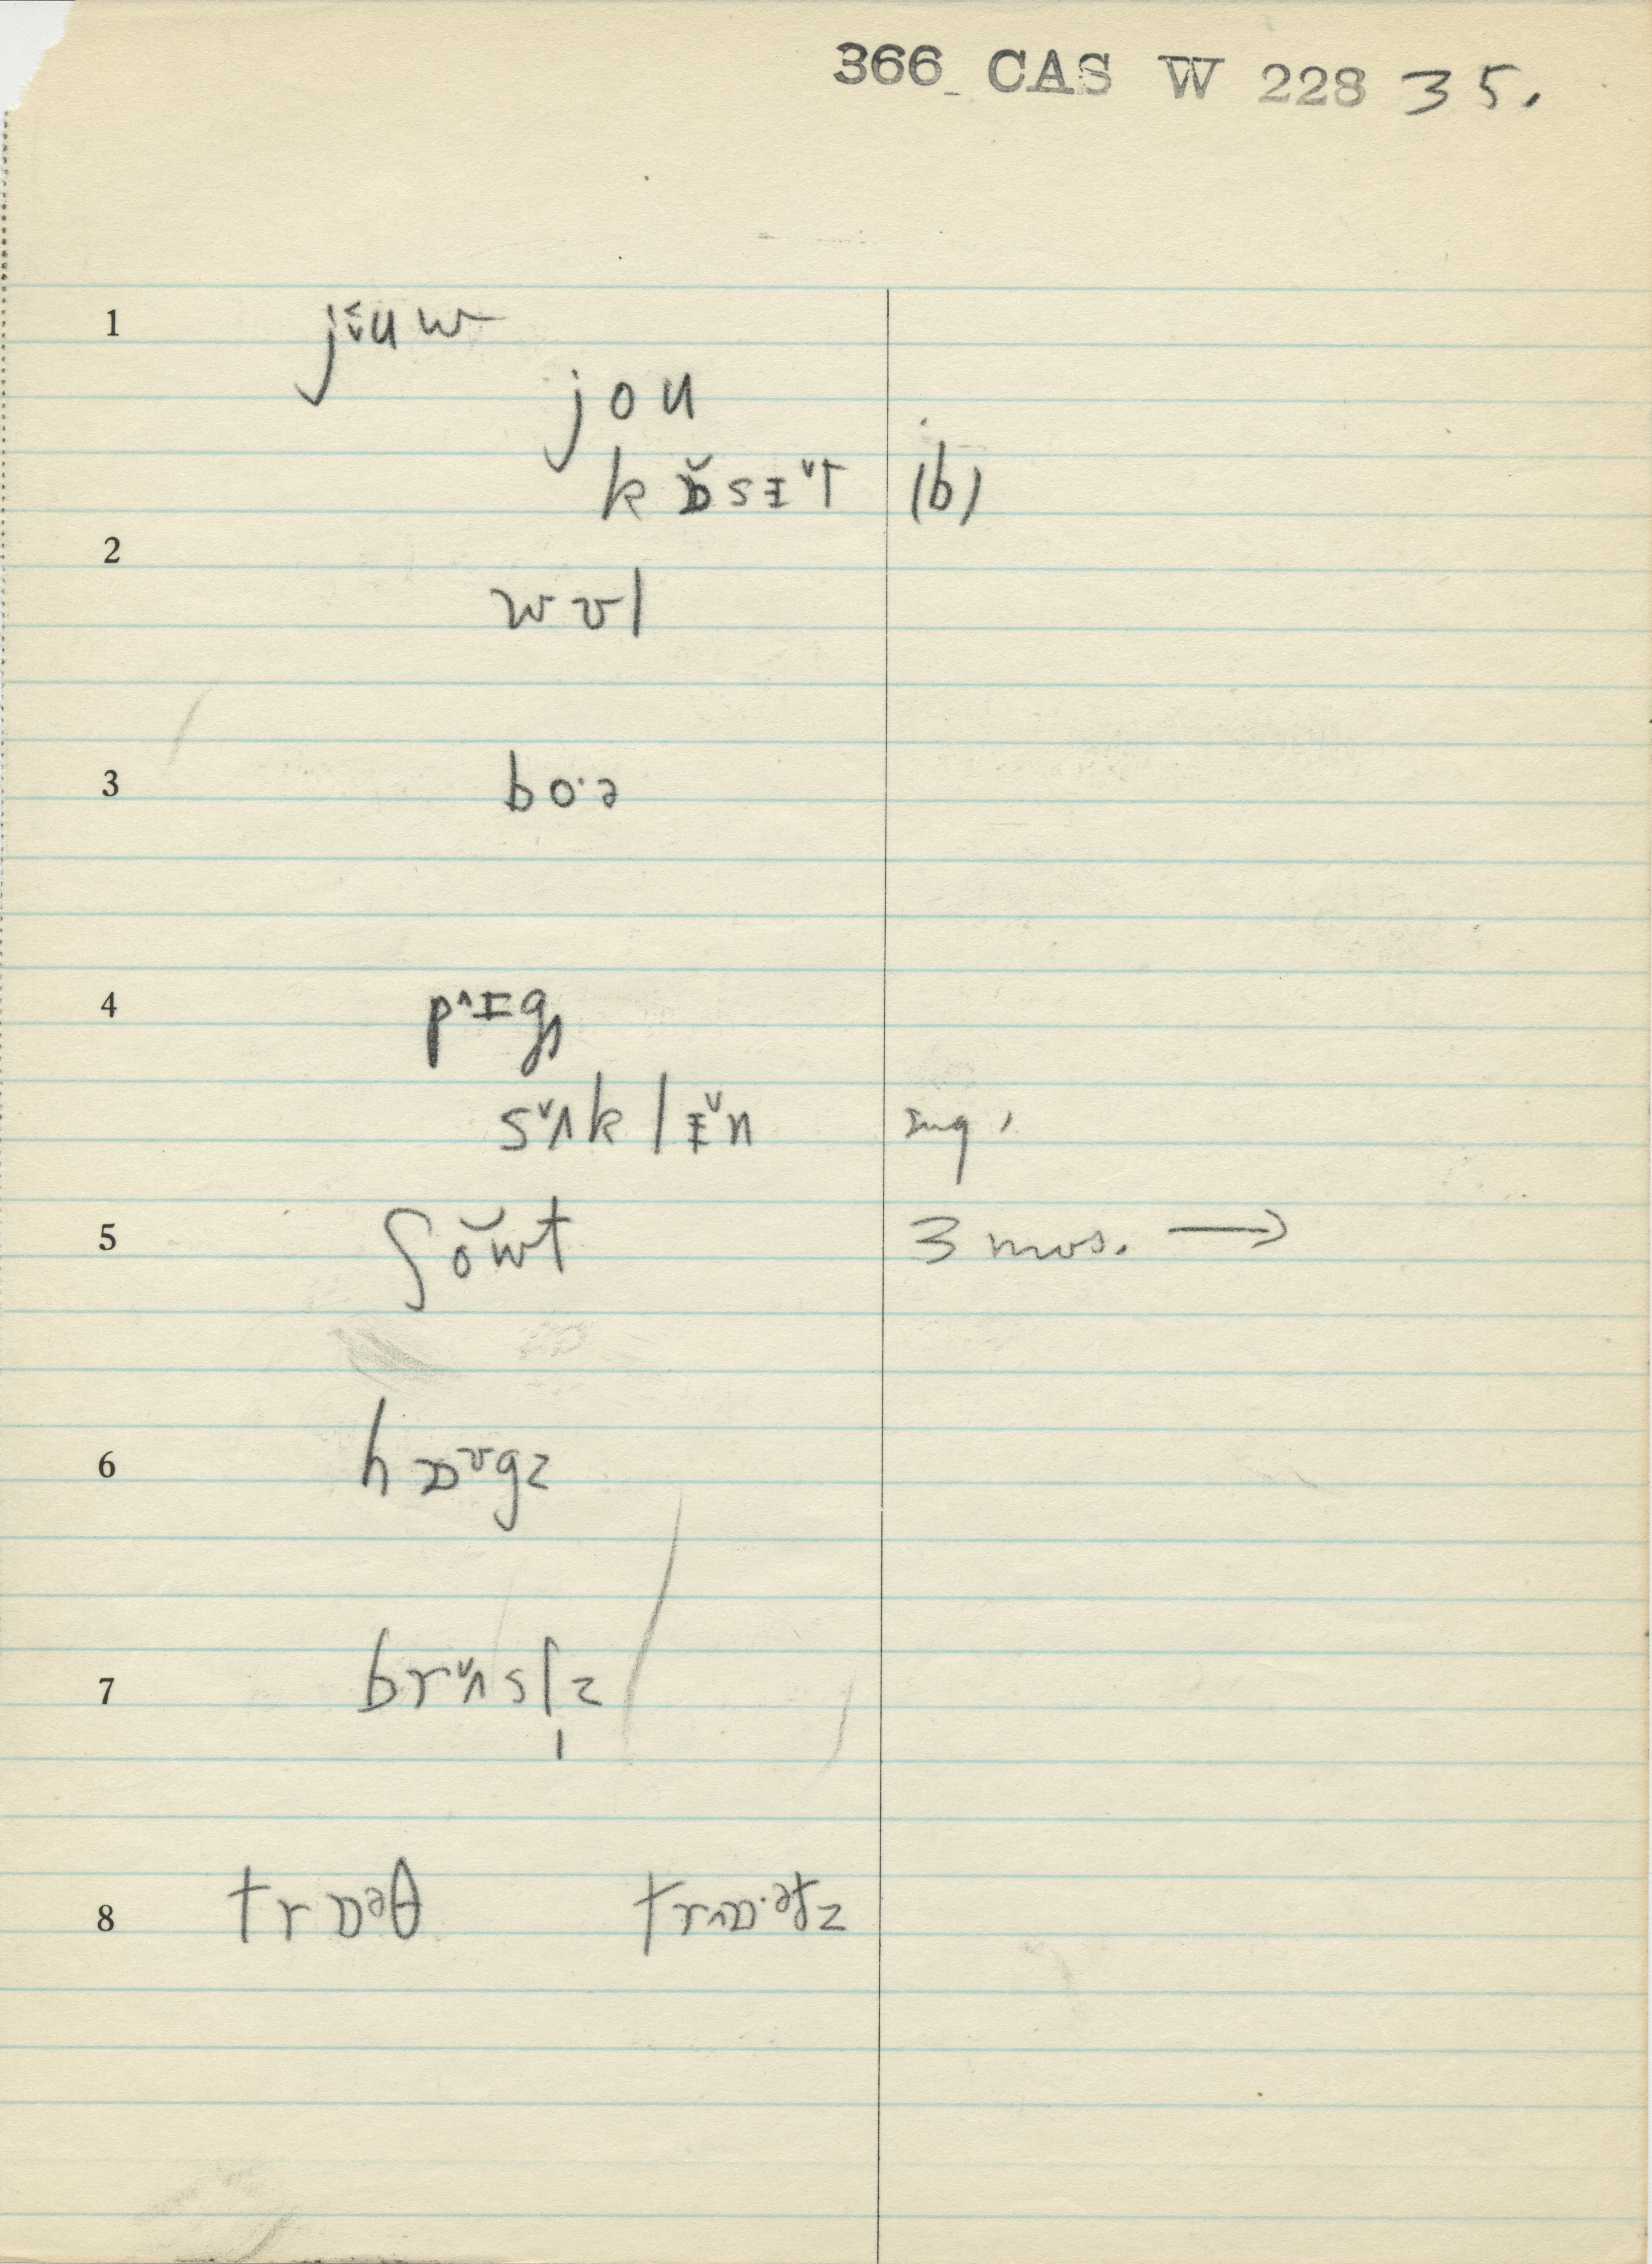 366 CAS W 228 35.
1 jɪ̆uw
jou
kɒ̆sᵻ̆t (b)
2
wʊl
3 bo·ə
4 p^ᵻgṇ
s^ʌk lᵻ̆n
5 ʃŏwt 3 mos. →
6 hɒᶷgz
7 brʌ̆sl̩z
8 trɒᵊθ trɒ·ᵊtz